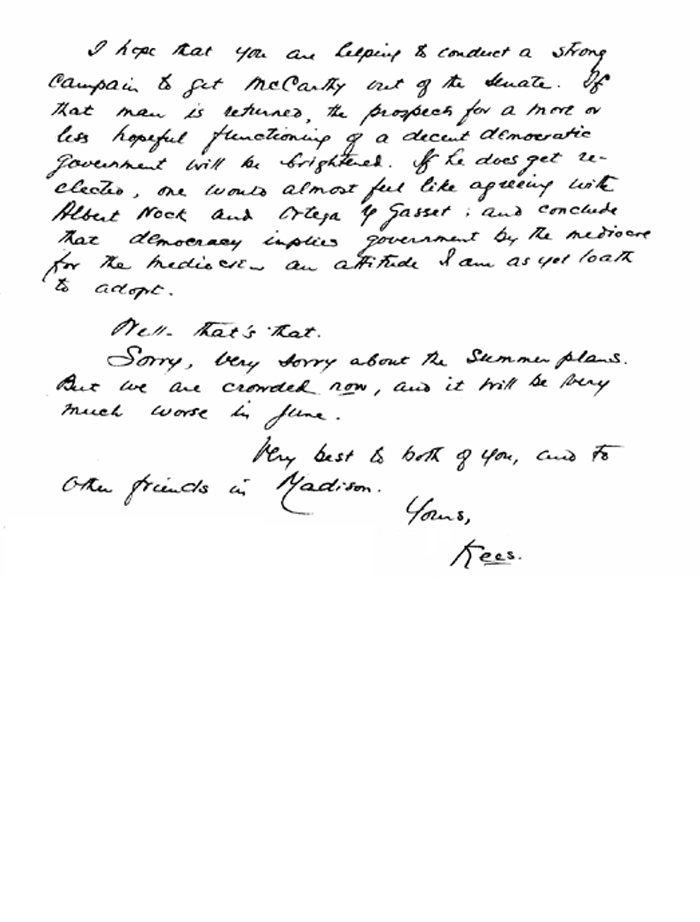 I hope that you are helping to conduct a strong
Campain to get McCarthy out of the Senate. If
that man is returned, the prospects for a more or
less hopeful functioning of a decent democratic
government will be brightened. If he does get re-
elected, one would almost feel like agreeing with
Albert Nock and Ortega y Gasset; and conclude
that democracy implies government by the mediocre
for the mediocre – an attitude I am as yet loath
to adopt.
Well – that's that.
Sorry, very sorry about the Summer plans.
But we are crowded now, and it will be very
much worse in June.
Very best to both of you, and to
other friends in Madison.
Yours,
Kees.